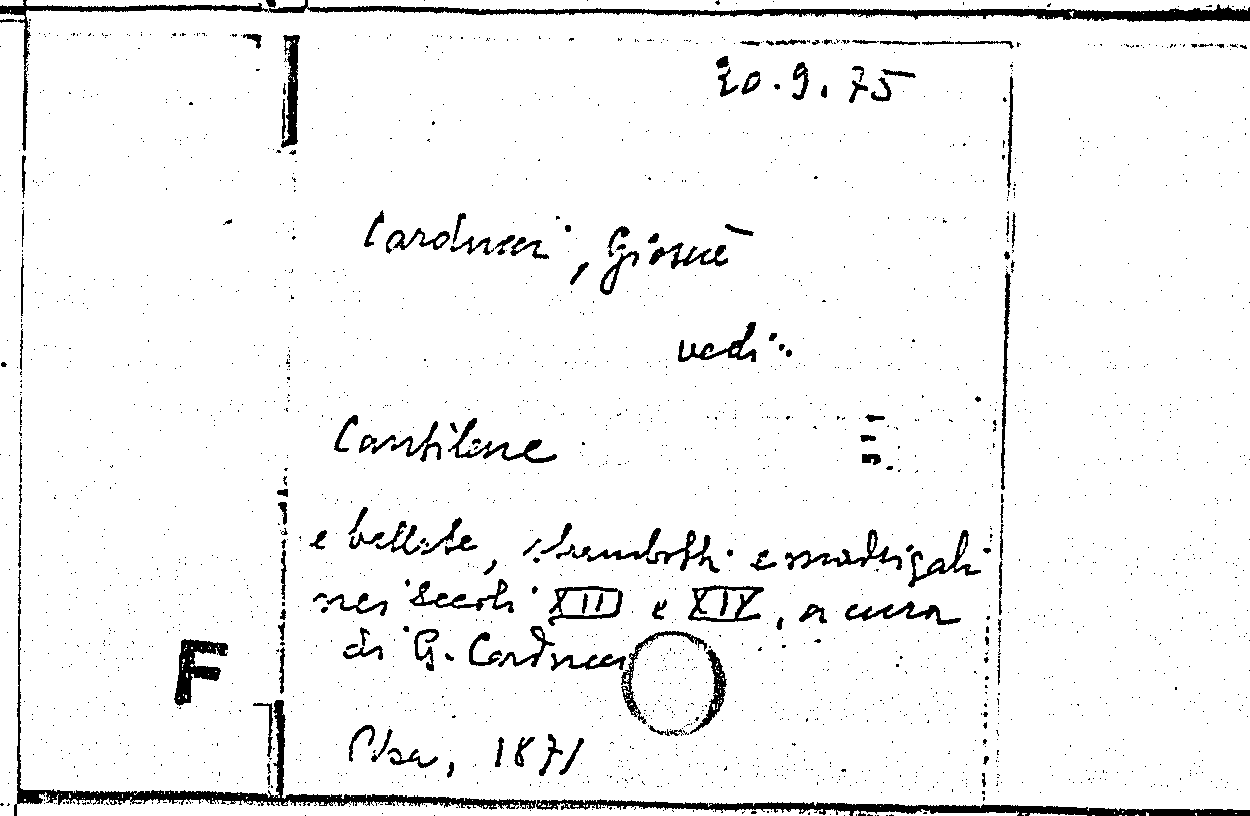 20.9.75
Carducci, Giosuè
vedi:
Cantilene
e ballate, strambotti e madrigali
nei secoli XIII e XIV, a cura
di G. Carducci
F
Pisa, 1871